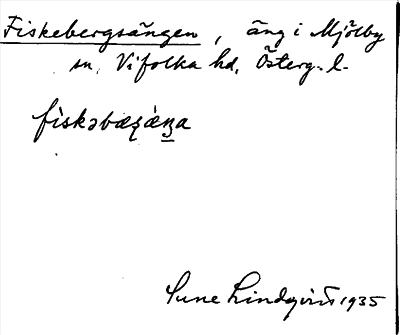 Fiskebergsängen, äng i Mjölby
sn, Vifolka hd, Österg. l.
fìskəbæʐæ̀ŋa
Sune Lindqvist 1935